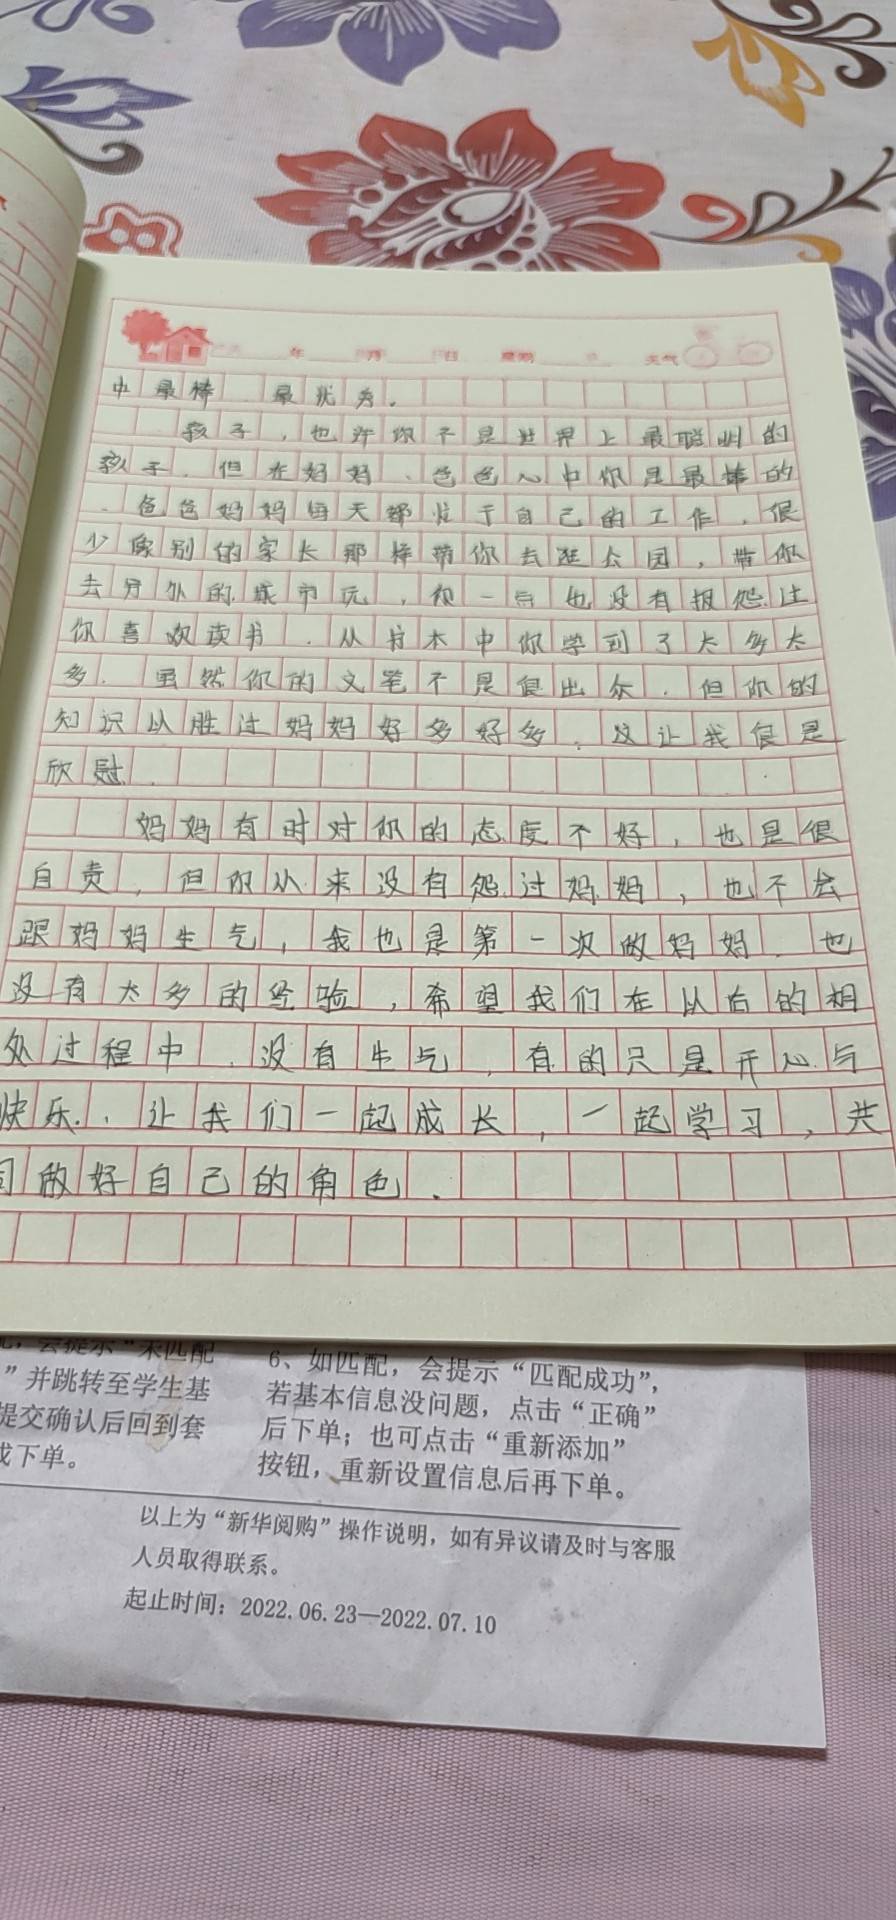 年 月 日 星期 天气
中最棒 最优秀.
孩子,也许你不是世界上最聪明的
孩子.但在妈妈、爸爸心中你是最棒的
.爸爸妈妈每天都忙于自己的工作.很
少像别的家长那样带你去逛公园,带你
去另外的城市玩,你一点也没有报怨过
你喜欢读书.从书本中你学到了太多太
多.虽然你的文笔不是很出众.但你的
知识以胜过妈妈好多好多.这让我很是
欣慰.
妈妈有时对你的态度不好,也是很
自责,但你从来没有怨过妈妈,也不会
跟妈妈生气,我也是第一次做妈妈.也
没有太多的经验,希望我们在以后的相
处过程中.没有生气,有的只是开心与
快乐.让我们一起成长,一起学习,共
同做好自己的角色.
会提示“未匹配
”并跳转至学生基
提交确认后回到套
成下单。
6、如匹配，会提示“匹配成功”，
若基本信息没问题，点击“正确”
后下单；也可点击“重新添加”
按钮，重新设置信息后再下单。
以上为“新华阅购”操作说明，如有异议请及时与客服
人员取得联系。
起止时间：2022.06.23—2022.07.10